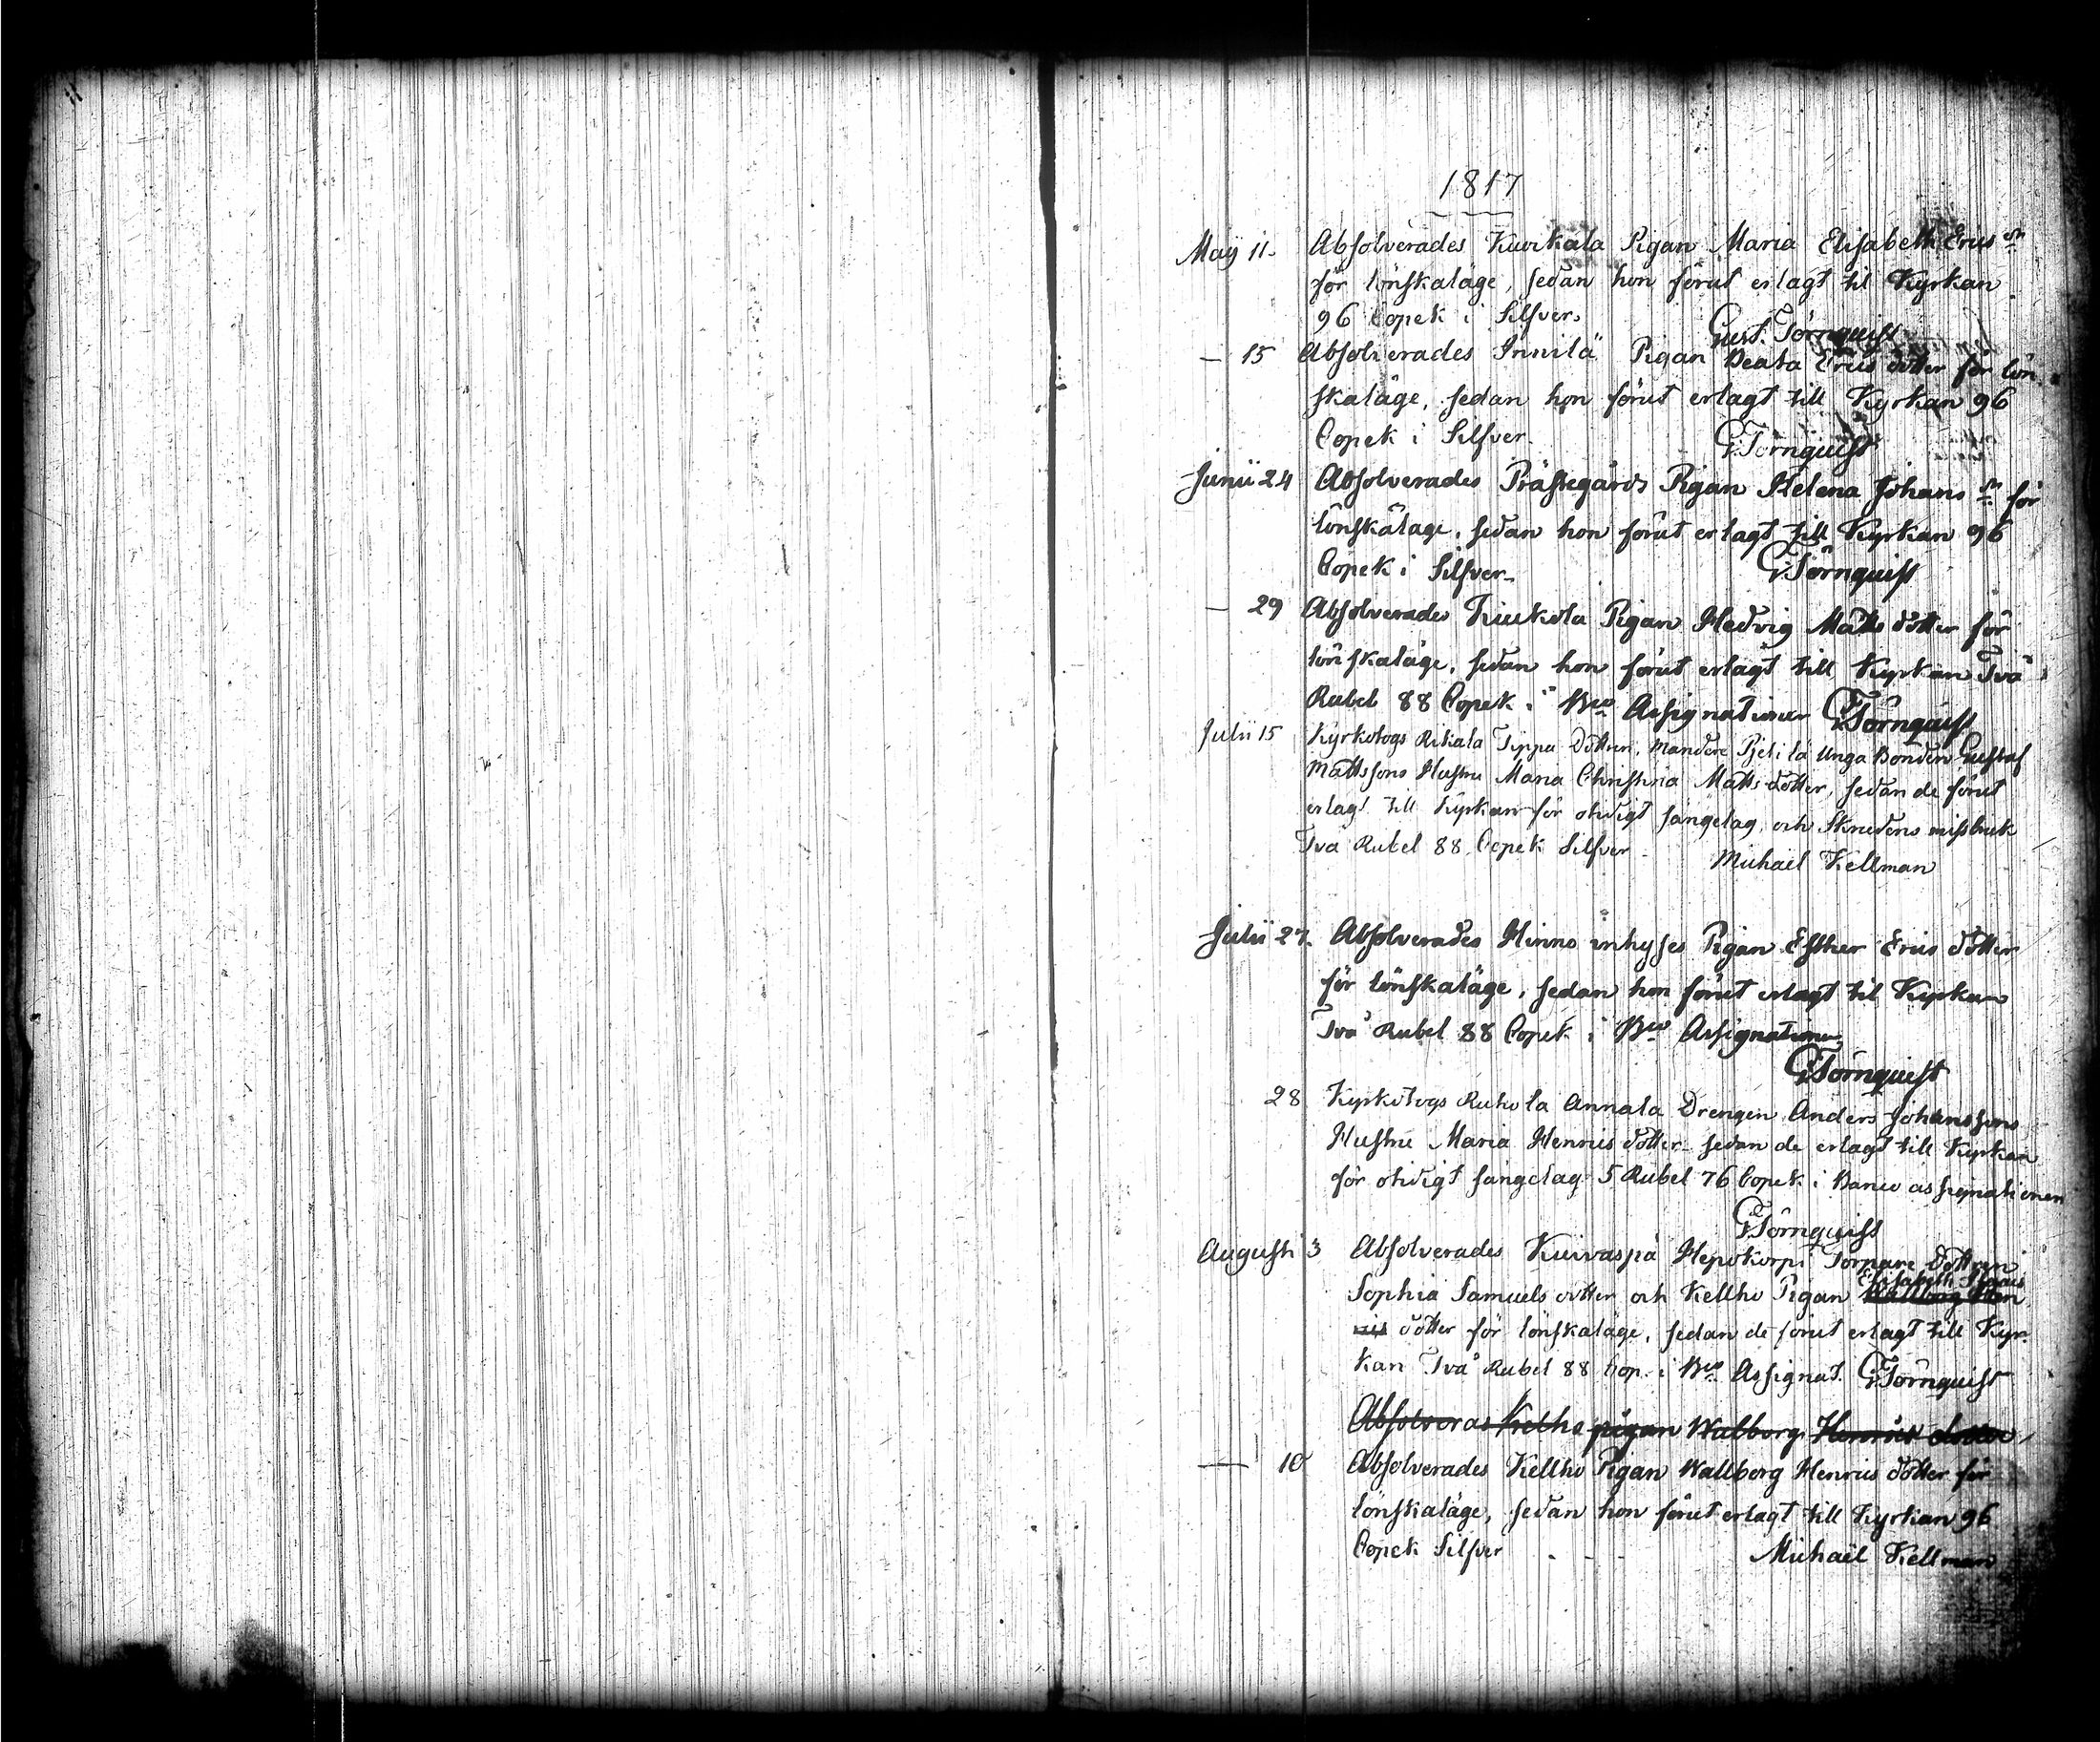 1817
May 11. Absolverades Kuvikala Pigan Maria Elisabeth Erics dr
för lönskaläge, sedan hon förut erlagt til Kyrkan
96 Copek i Silfver. Gust. Törnquist
— 15 Absolverades Innilä Pigan Beata Erics dotter för lön-
skaläge, sedan hon förut erlagt till Kyrkan 96
Copek i Silfver. G. Törnquist
Junii 24 Absolverades Prästegårds Pigan Helena Johans dr för
lönskaläge, sedan hon förut erlagt till Kyrkan 96
Copek i Silfver. G. Törnquist
— 29 Absolverades Kiukola Pigan Hedvig Matts dotter för
lönskaläge, sedan hon förut erlagt till Kyrkan Två
Rubel 88 Copek i Bco Assignationer G. Törnquist
Julii 15 Kyrkotogs Rikala Seppä dottren, Pjelilä Unga Bonden Gustaf
Mattssons Hustru Maria Christina Matts dotter, sedan de förut
erlagt till Kyrkan för otidigt sängelag och Skrudens missbruk
Två Rubel 88 Copek Silfver. Michaël Kellman
Julii 27. Absolverades Hinno inhyses Pigan Esther Erics dotter
för lönskaläge, sedan hon förut erlagt til Kyrkan
Två Rubel 88 Copek i Bco Assignationer
G. Törnquist
28 Kyrkotogs Annala Drengen Anders Johanssons
Hustru Maria Henrics dotter sedan de erlagt till Kyrkan
för otidigt sängelag 5 Rubel 76 Copek i Banco assignationen
G. Törnquist
Augusti 3 Absolverades Kuivaspä Hepokorpi Torpare dottren
Elisabeth Isaacs
Sophia Samuels dotter och Kellho Pigan Wallborg Hen
ris dotter för lönskaläge, sedan de förut erlagt till Kyr-
kan Två Rubel 88 Cop. i Bco Assignat. G. Törnquist
Absolveras Kelho pigan Walborg Henrics dotter
— 10 Absolverades Kellho Pigan Wallborg Henrics dotter för
lönskaläge, sedan hon förut erlagt till Kyrkan 96
Copek Silfver - - - Michaël Kellman